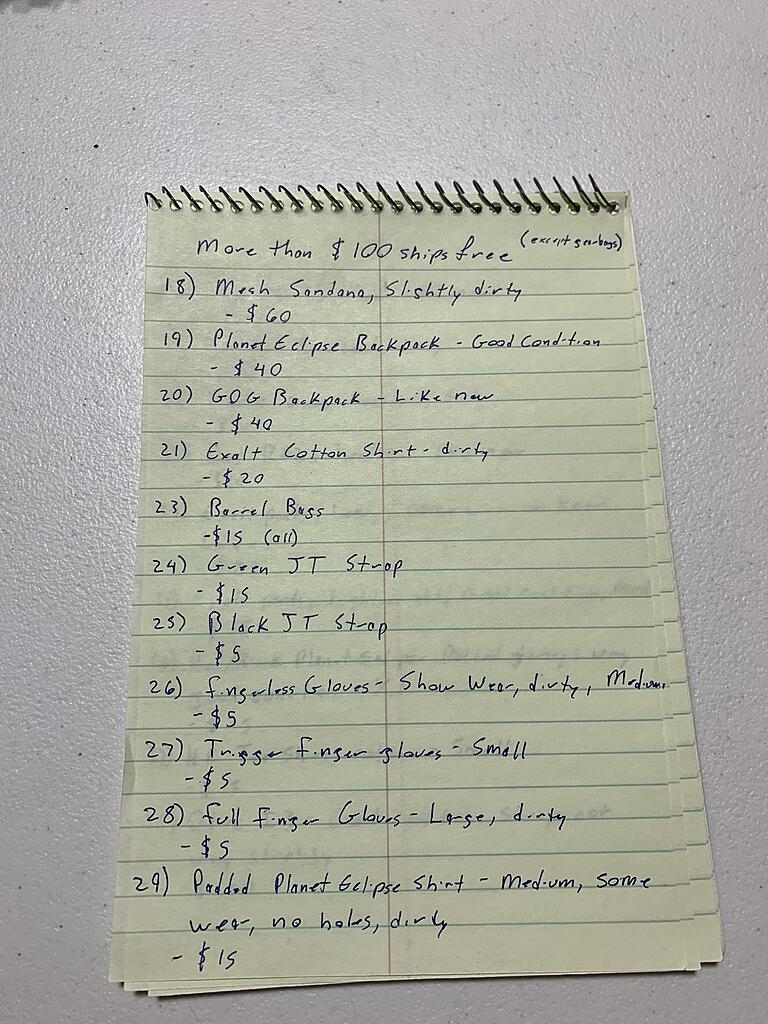 More than $100 ships free (except gearbags)
18) Mesh Sandana, Slightly dirty
- $60
19) Planet Eclipse Backpack - Good Condition
- $40
20) GOG Backpack - Like new
- $40
21) Exalt Cotton Shirt - dirty
- $20
23) Barrel Bags
-$15 (all)
24) Green JT Strap
- $15
25) Black JT Strap
- $5
26) fingerless Gloves - Show Wear, dirty, Medium
- $5
27) Trigger finger gloves - Small
- $5
28) full finger Gloves - Large, dirty
- $5
29) Padded Planet Eclipse Shirt - Medium, Some
wear, no holes, dirty
- $15